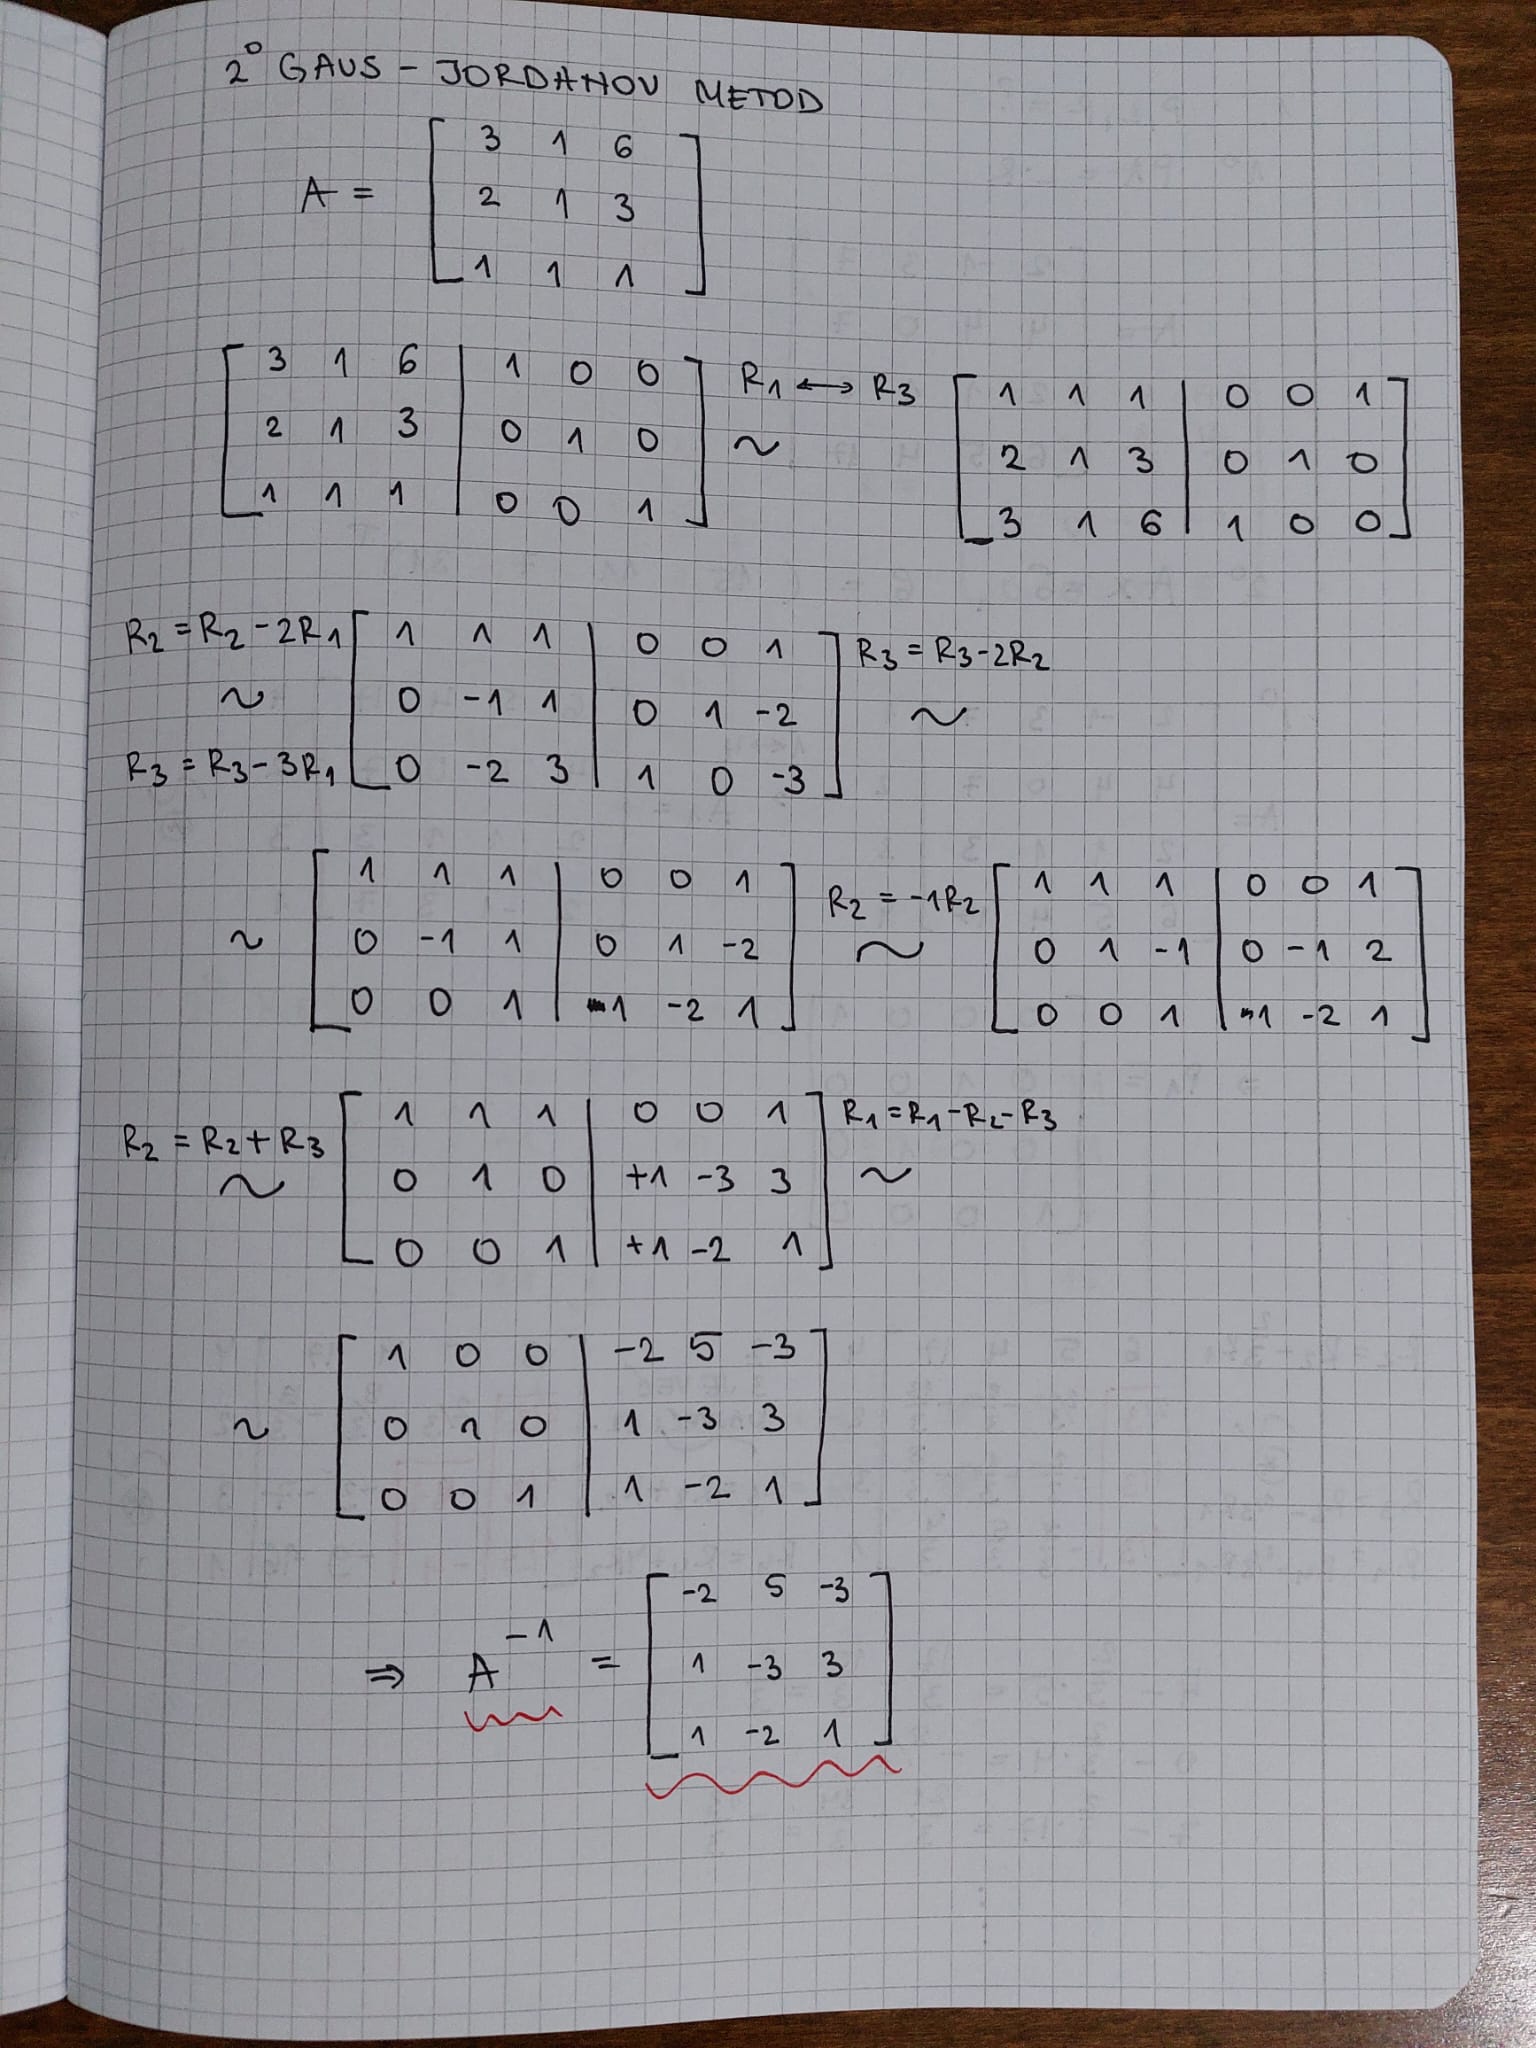 2° GAUS - JORDANOV METOD
A = [ 3 1 6
2 1 3
1 1 1 ]
[ 3 1 6 | 1 0 0
2 1 3 | 0 1 0
1 1 1 | 0 0 1 ]
R1 ↔ R3
~
[ 1 1 1 | 0 0 1
2 1 3 | 0 1 0
3 1 6 | 1 0 0 ]
R2 = R2 - 2R1
~
R3 = R3 - 3R1
[ 1 1 1 | 0 0 1
0 -1 1 | 0 1 -2
0 -2 3 | 1 0 -3 ]
R3 = R3 - 2R2
~
~ [ 1 1 1 | 0 0 1
0 -1 1 | 0 1 -2
0 0 1 | 1 -2 1 ]
R2 = -1R2
~
[ 1 1 1 | 0 0 1
0 1 -1 | 0 -1 2
0 0 1 | 1 -2 1 ]
R2 = R2 + R3
~
[ 1 1 1 | 0 0 1
0 1 0 | +1 -3 3
0 0 1 | +1 -2 1 ]
R1 = R1 - R2 - R3
~
~ [ 1 0 0 | -2 5 -3
0 1 0 | 1 -3 3
0 0 1 | 1 -2 1 ]
⇒ A^-1 = [ -2 5 -3
1 -3 3
1 -2 1 ]